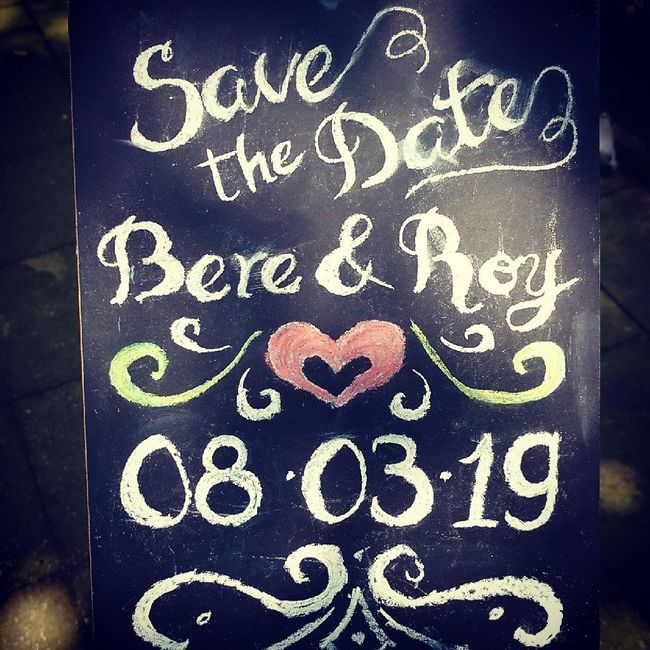 Save
the Date
Bere & Roy
08.03.19